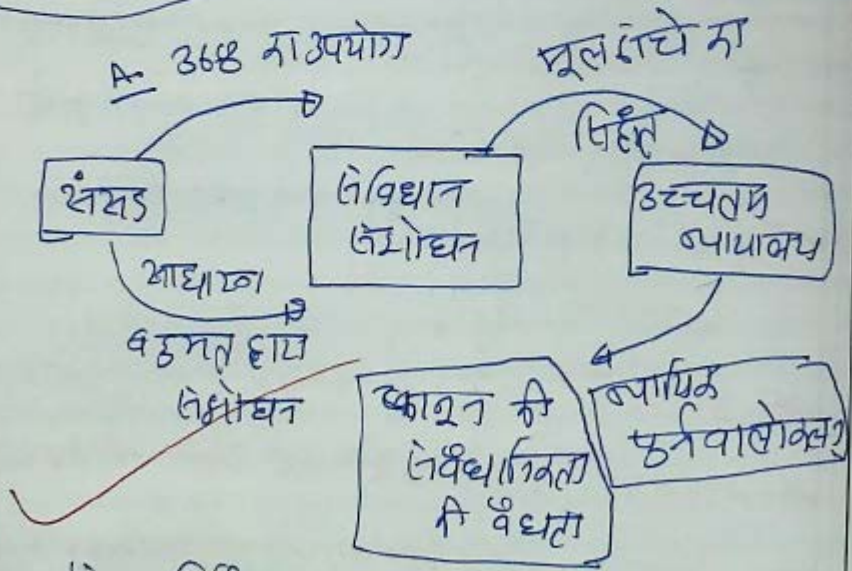 A. 368 का उपयोग
मूल ढांचे का
सिद्धांत
संसद
संविधान
संशोधन
उच्चतम
न्यायालय
साधारण
बहुमत द्वारा
संशोधन
कानून की
संवैधानिकता
की वैधता
न्यायिक
पुर्नवालोकन